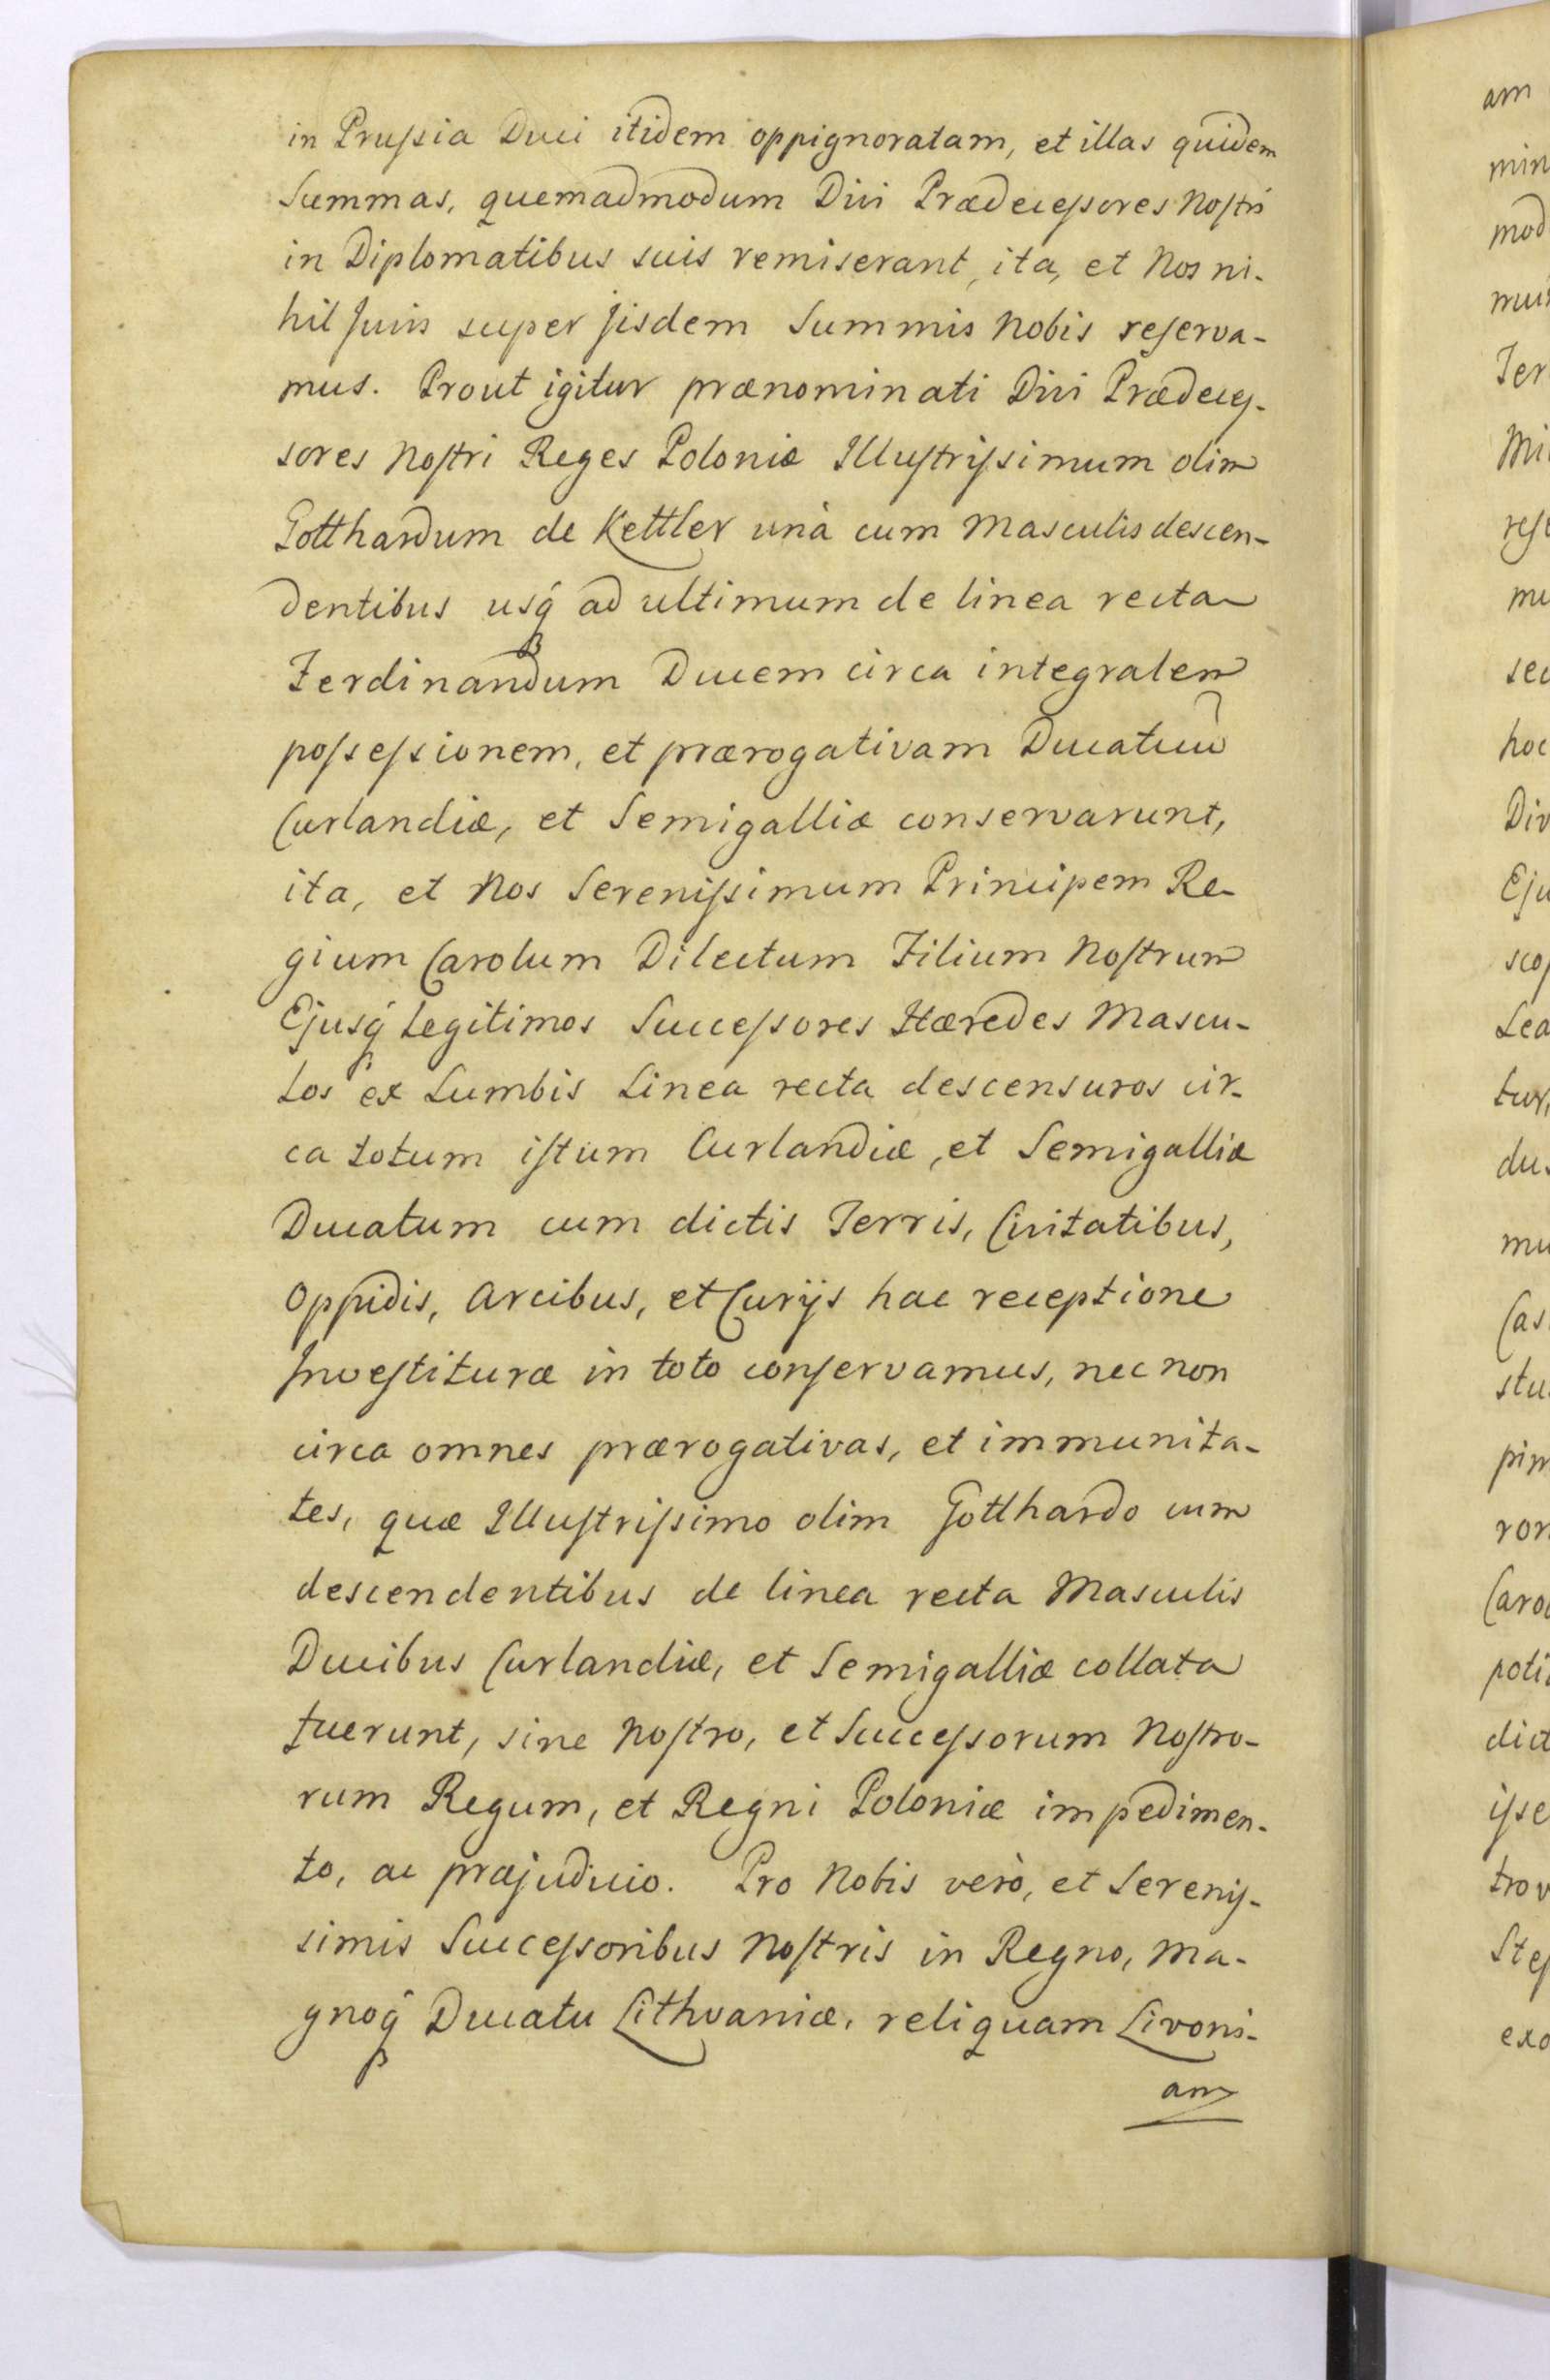 in Prussia Duci itidem oppignoratam, et illas quidem
Summas, quemadmodum Divi Prædecessores Nostri
in Diplomatibus suis remiserant, ita, et Nos ni-
hil Juris super Jisdem Summis Nobis reserva-
mus. Prout igitur prænominati Divi Prædeces-
sores Nostri Reges Poloniæ Illustrissimum olim
Gotthardum de Kettler unà cum Masculis descen-
dentibus usq́ ad ultimum de linea recta
Ferdinandum Ducem circa integralem
possessionem, et prærogativam Ducatuū
Curlandiæ, et Semigalliæ conservarunt,
ita, et Nos Serenissimum Principem Re-
gium Carolum Dilectum Filium Nostrum
Ejusq́ Legitimos Successores Hæredes Mascu-
los ex Lumbis Linea recta descensuros cir-
ca totum istum Curlandiæ, et Semigalliæ
Ducatum cum dictis Terris, Civitatibus,
Oppidis, Arcibus, et Curijs hac receptione
Investituræ in toto conservamus, nec non
circa omnes prærogativas, et immunita-
tes, quæ Illustrissimo olim Gotthardo cum
descendentibus de linea recta Masculis
Ducibus Curlandiæ, et Semigalliæ collata
fuerunt, sine Nostro, et Successorum Nostro-
rum Regum, et Regni Poloniæ impedimen-
to, ac præjudicio. Pro Nobis verò, et Serenis-
simis Successoribus Nostris in Regno, Ma-
gnoq́ Ducatu Lithvaniæ, reliquam Livoni-
am
am
min
mod
Ter
Mi
hoc
Div
Eju
sco
Lea
tur,
du
mu
Cas
stu
pim
ron
Caro
poti
dict
ipse
trov
Step
exo